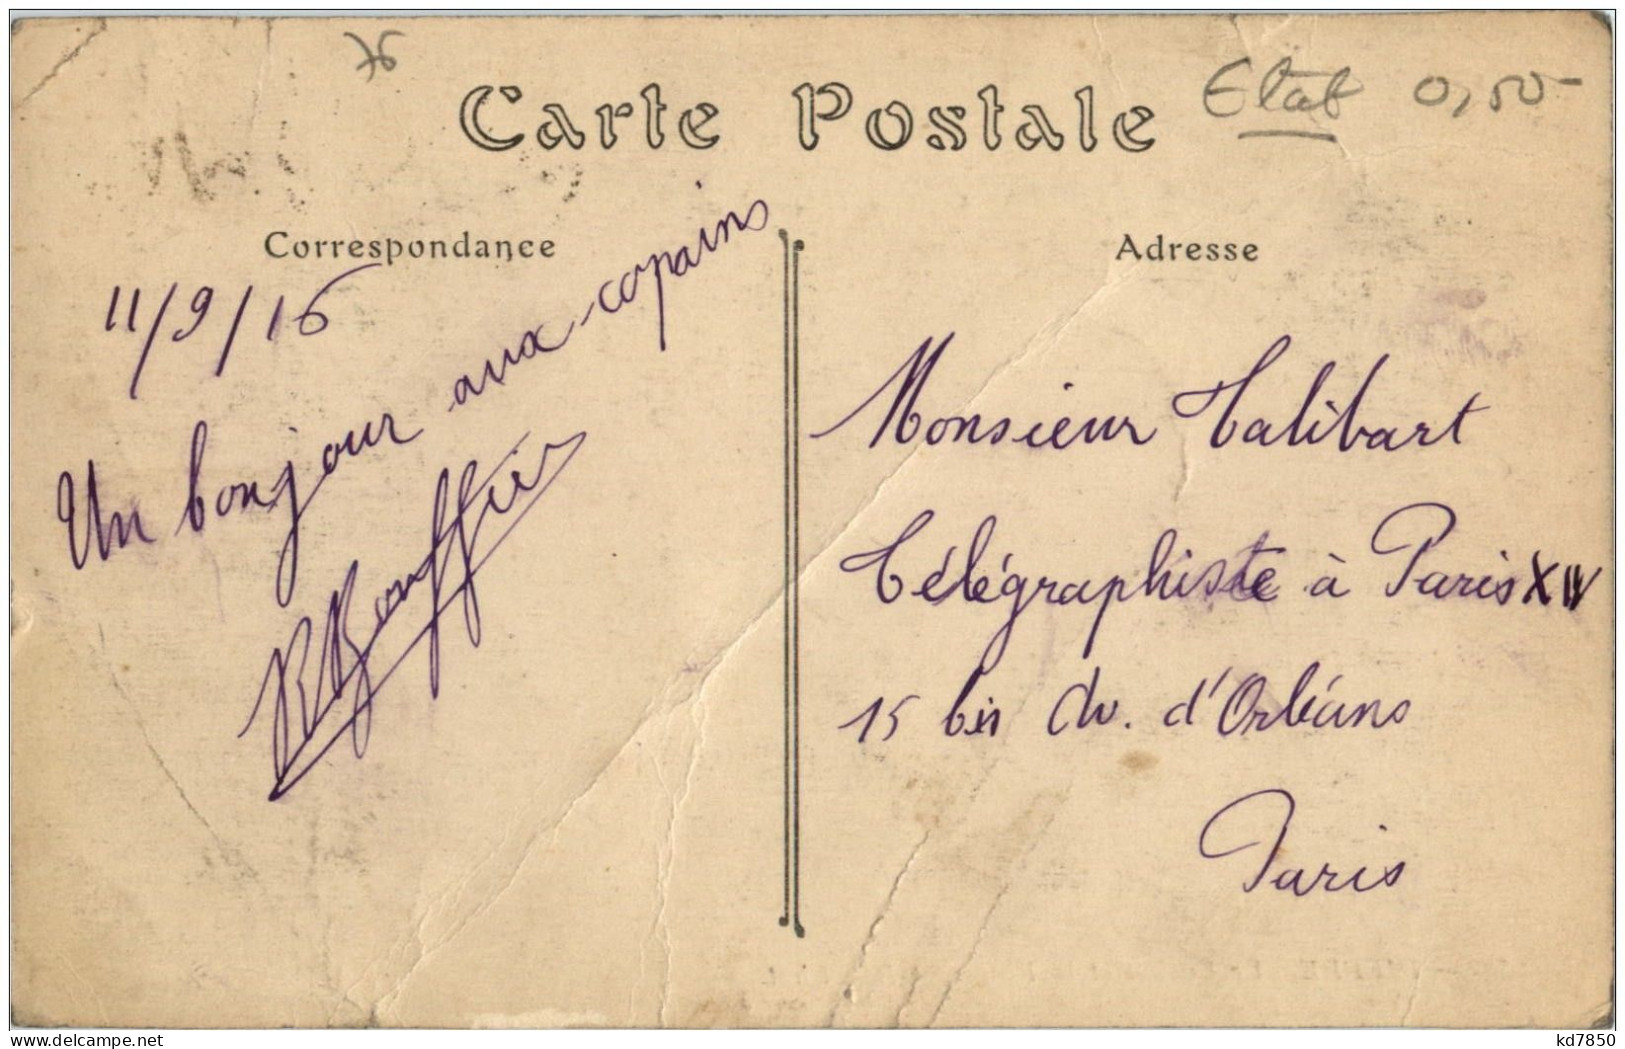 76
Carte Postale
Etat 0,50
Correspondance
11/9/16
Un bonjour aux copains
Adresse
Monsieur Talibart
Télégraphiste à Paris XIV
15 bis Av. d'Orléans
Paris
delcampe.net
kd7850